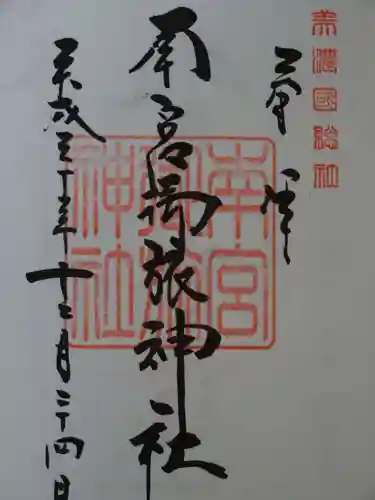 美濃國総社
奉拝
南宮御旅神社
南宮御旅神社
平成二十年十二月二十四日